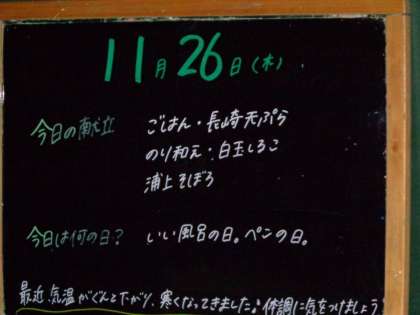 11月26日(木)
今日の献立 ごはん・長崎天ぷら
のり和え・白玉しるこ
浦上そぼろ
今日は何の日? いい風呂の日。ペンの日。
最近、気温がぐんと下がり、寒くなってきました。体調に気をつけましょう